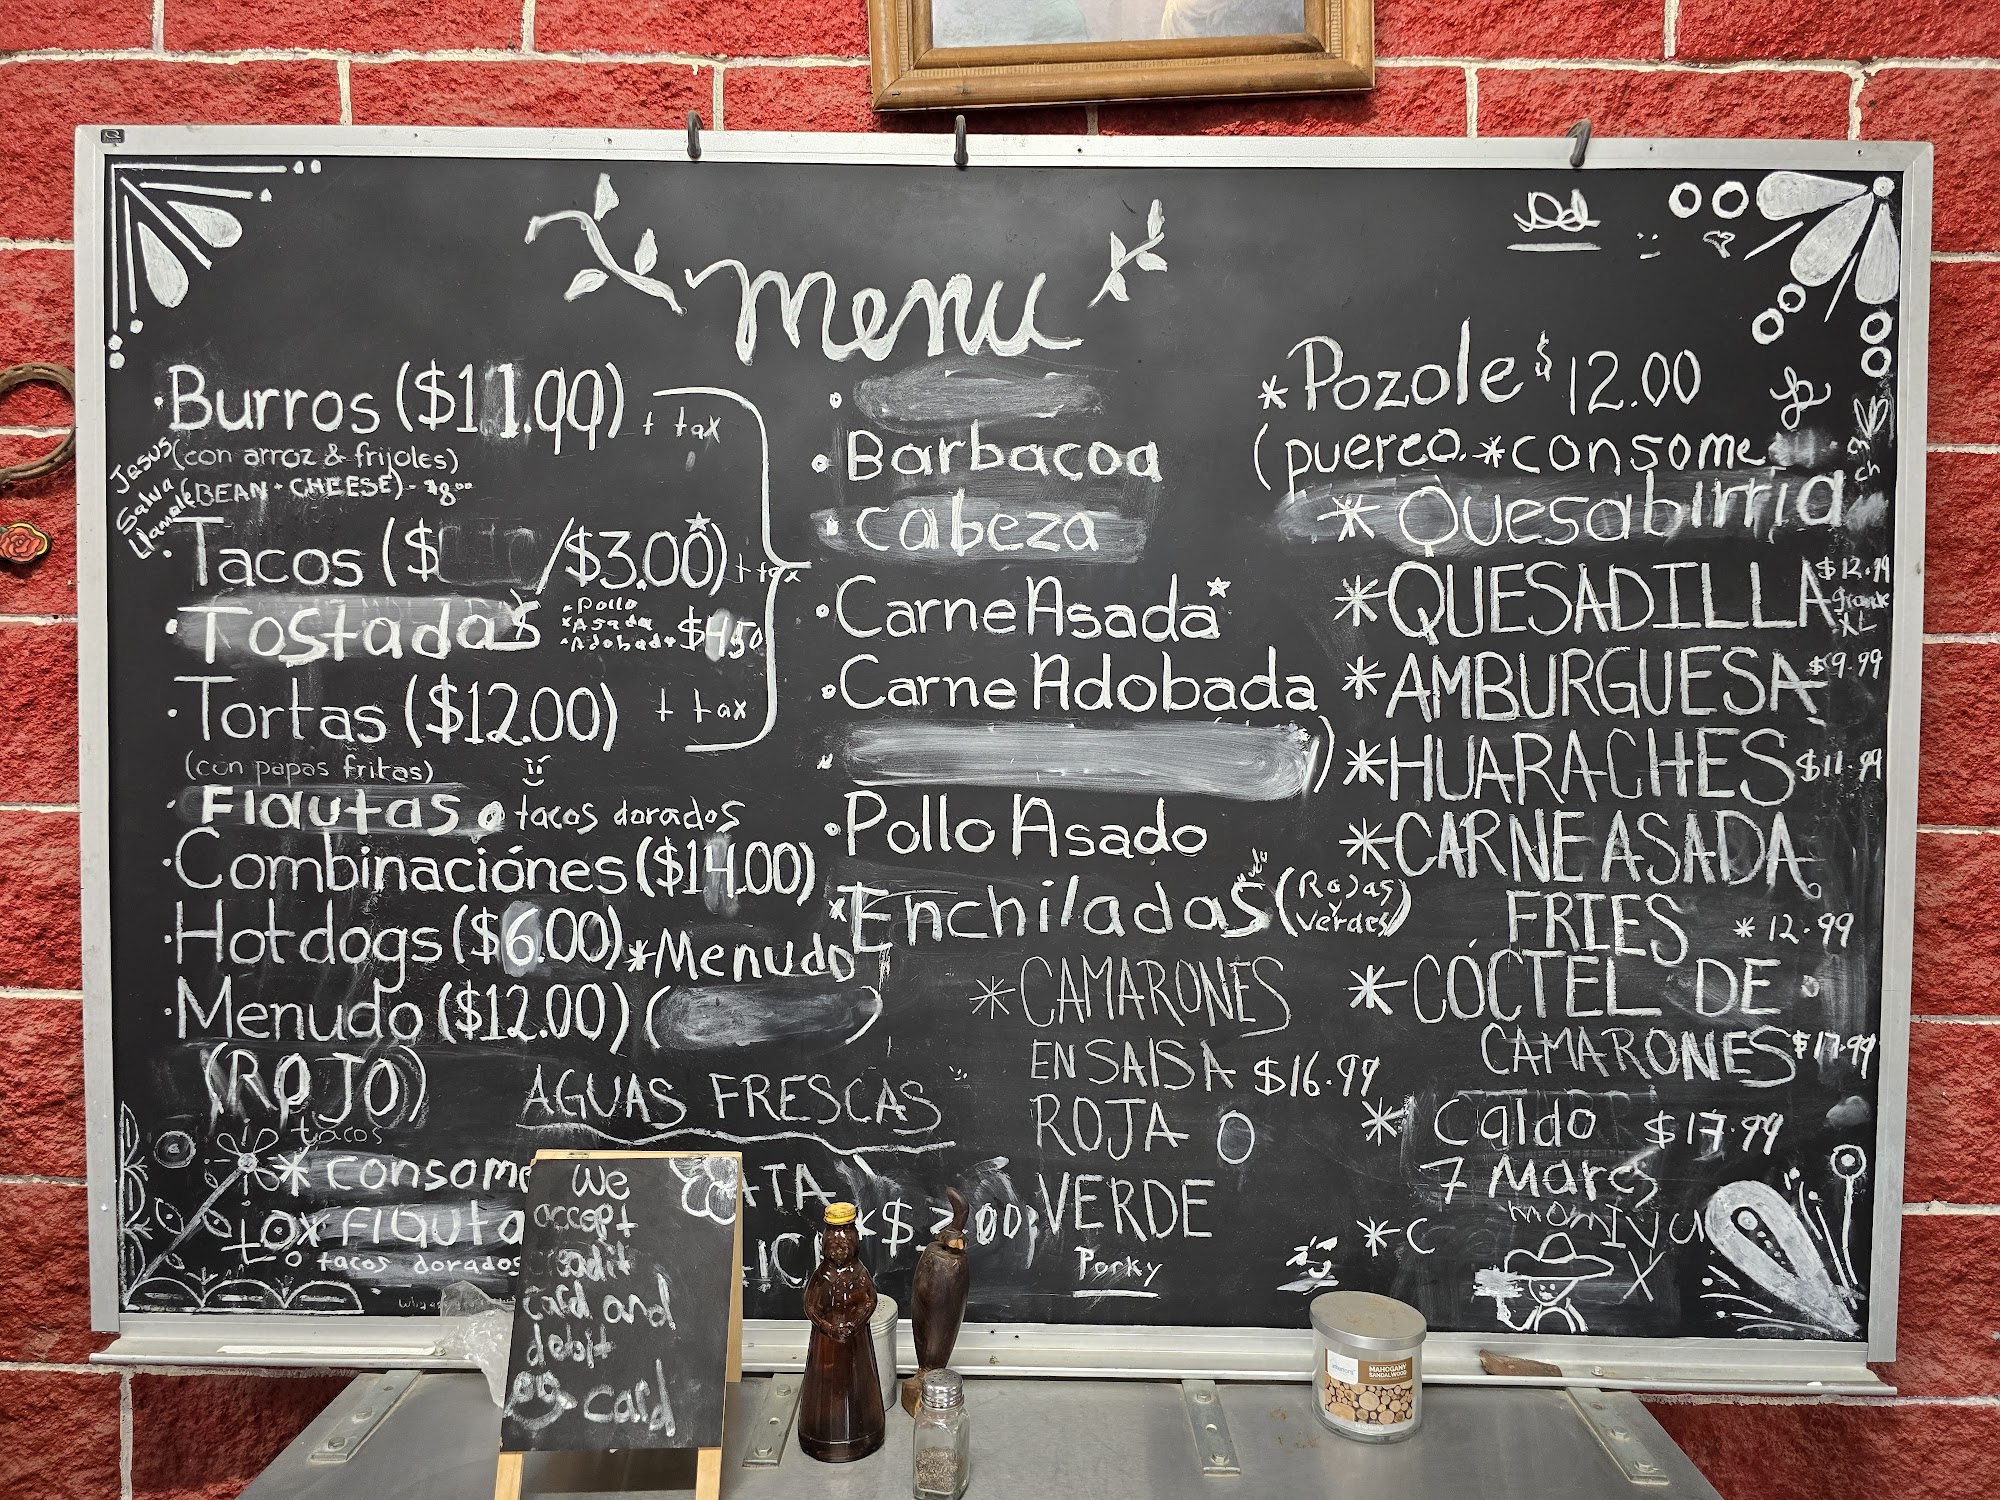 Menu
Burros ($11.99) + tax
(con arroz & frijoles)
(BEAN + CHEESE) -
Jesus
Salva
Llamale
Tacos ($ /$3.00) + tax
Tostadas
Pollo
Asada
Adobada
$4.50
Tortas ($12.00) + tax
(con papas fritas)
Flautas o tacos dorados
Combinaciónes ($14.00)
Hotdogs ($6.00) *Menudo
Menudo ($12.00) ( )
(ROJO)
tacos
* consome
Flauta
o tacos dorados
AGUAS FRESCAS
Barbacoa
Cabeza
Carne Asada
Carne Adobada
Pollo Asado
Enchiladas (Rojas
Verdes)
*CAMARONES
EN SALSA $16.99
ROJA O
VERDE
Porky
*Pozole $12.00
(puerco.*consome
*Quesabirria
*QUESADILLA $12.99
grande
XL
*AMBURGUESA $9.99
*HUARACHES $11.99
*CARNE ASADA
FRIES *12.99
*CÓCTEL DE
CAMARONES $17.99
* Caldo $17.99
7 Mares
*C
We
accept
credit
card and
debit
card
MAHOGANY
SANDALWOOD